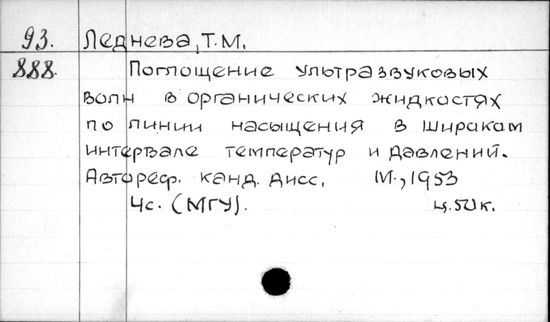 93. Леднева, Т.М.
888. Поглощение ультразвуковых
волн в органических жидкостях
по линии насыщения в широком
интервале температур и давлений.
Автореф. канд. дисс. М., 1953
4с. (МГУ). ц. 50 к.